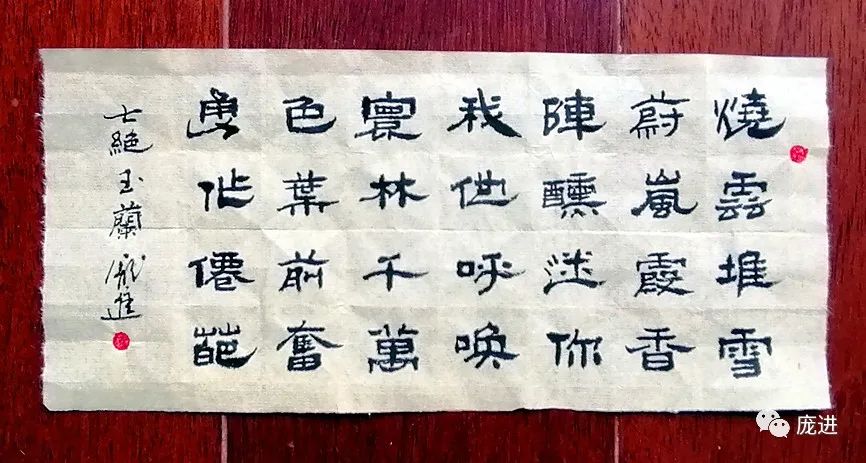 燒雲堆雪
蔚嵐霞香
陣醺迷你
我他呼喚
寰林千萬
色葉前奮
勇作僊葩
七絕玉蘭 龐進
庞进